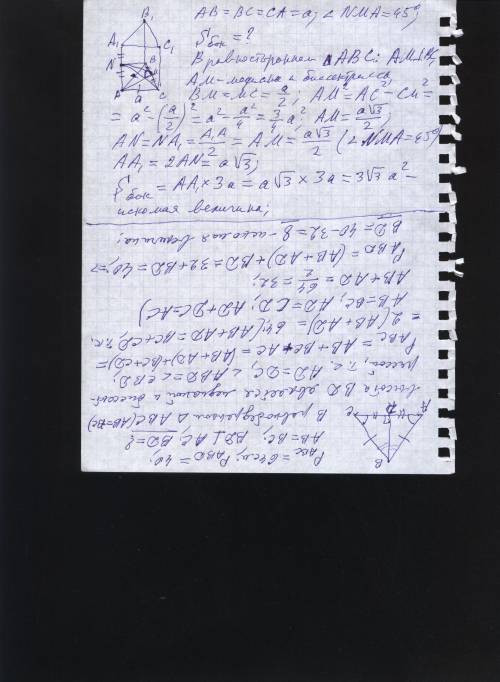 B₁
A₁
C₁
N
B
M
A
a
C
AB = BC = CA = a; ∠NMA = 45°;
Sбок = ?
В равностороннем ΔABC: AM⊥BC,
AM - медиана и биссектриса,
BM = MC = a/2; AM² = AC² - CM² =
= a² - (a/2)² = a² - a²/4 = 3/4 a²; AM = a√3/2;
AN = NA₁ = A₁A/2 = AM = a√3/2 (∠NMA = 45°)
AA₁ = 2AN = a√3;
Sбок = AA₁ × 3a = a√3 × 3a = 3√3 a² -
искомая величина;
PABC = 64см; PABD = 40;
AB = BC; BD ⊥ AC; BD = ?
В равнобедренном Δ ABC (AB = BC)
высота BD является медианой и биссект-
рисой, т.е. AD = DC, ∠ABD = ∠CBD;
PABC = AB + BC + AC = (AB + AD) + (BC + CD) =
= 2(AB + AD) = 64 (AB + AD = BC + CD, т.к.
AB = BC; AD = CD; AD + DC = AC)
AB + AD = 64/2 = 32;
PABD = (AB + AD) + BD = 32 + BD = 40; ⇒
BD = 40 - 32 = 8 - искомая величина;
B
A
D
C